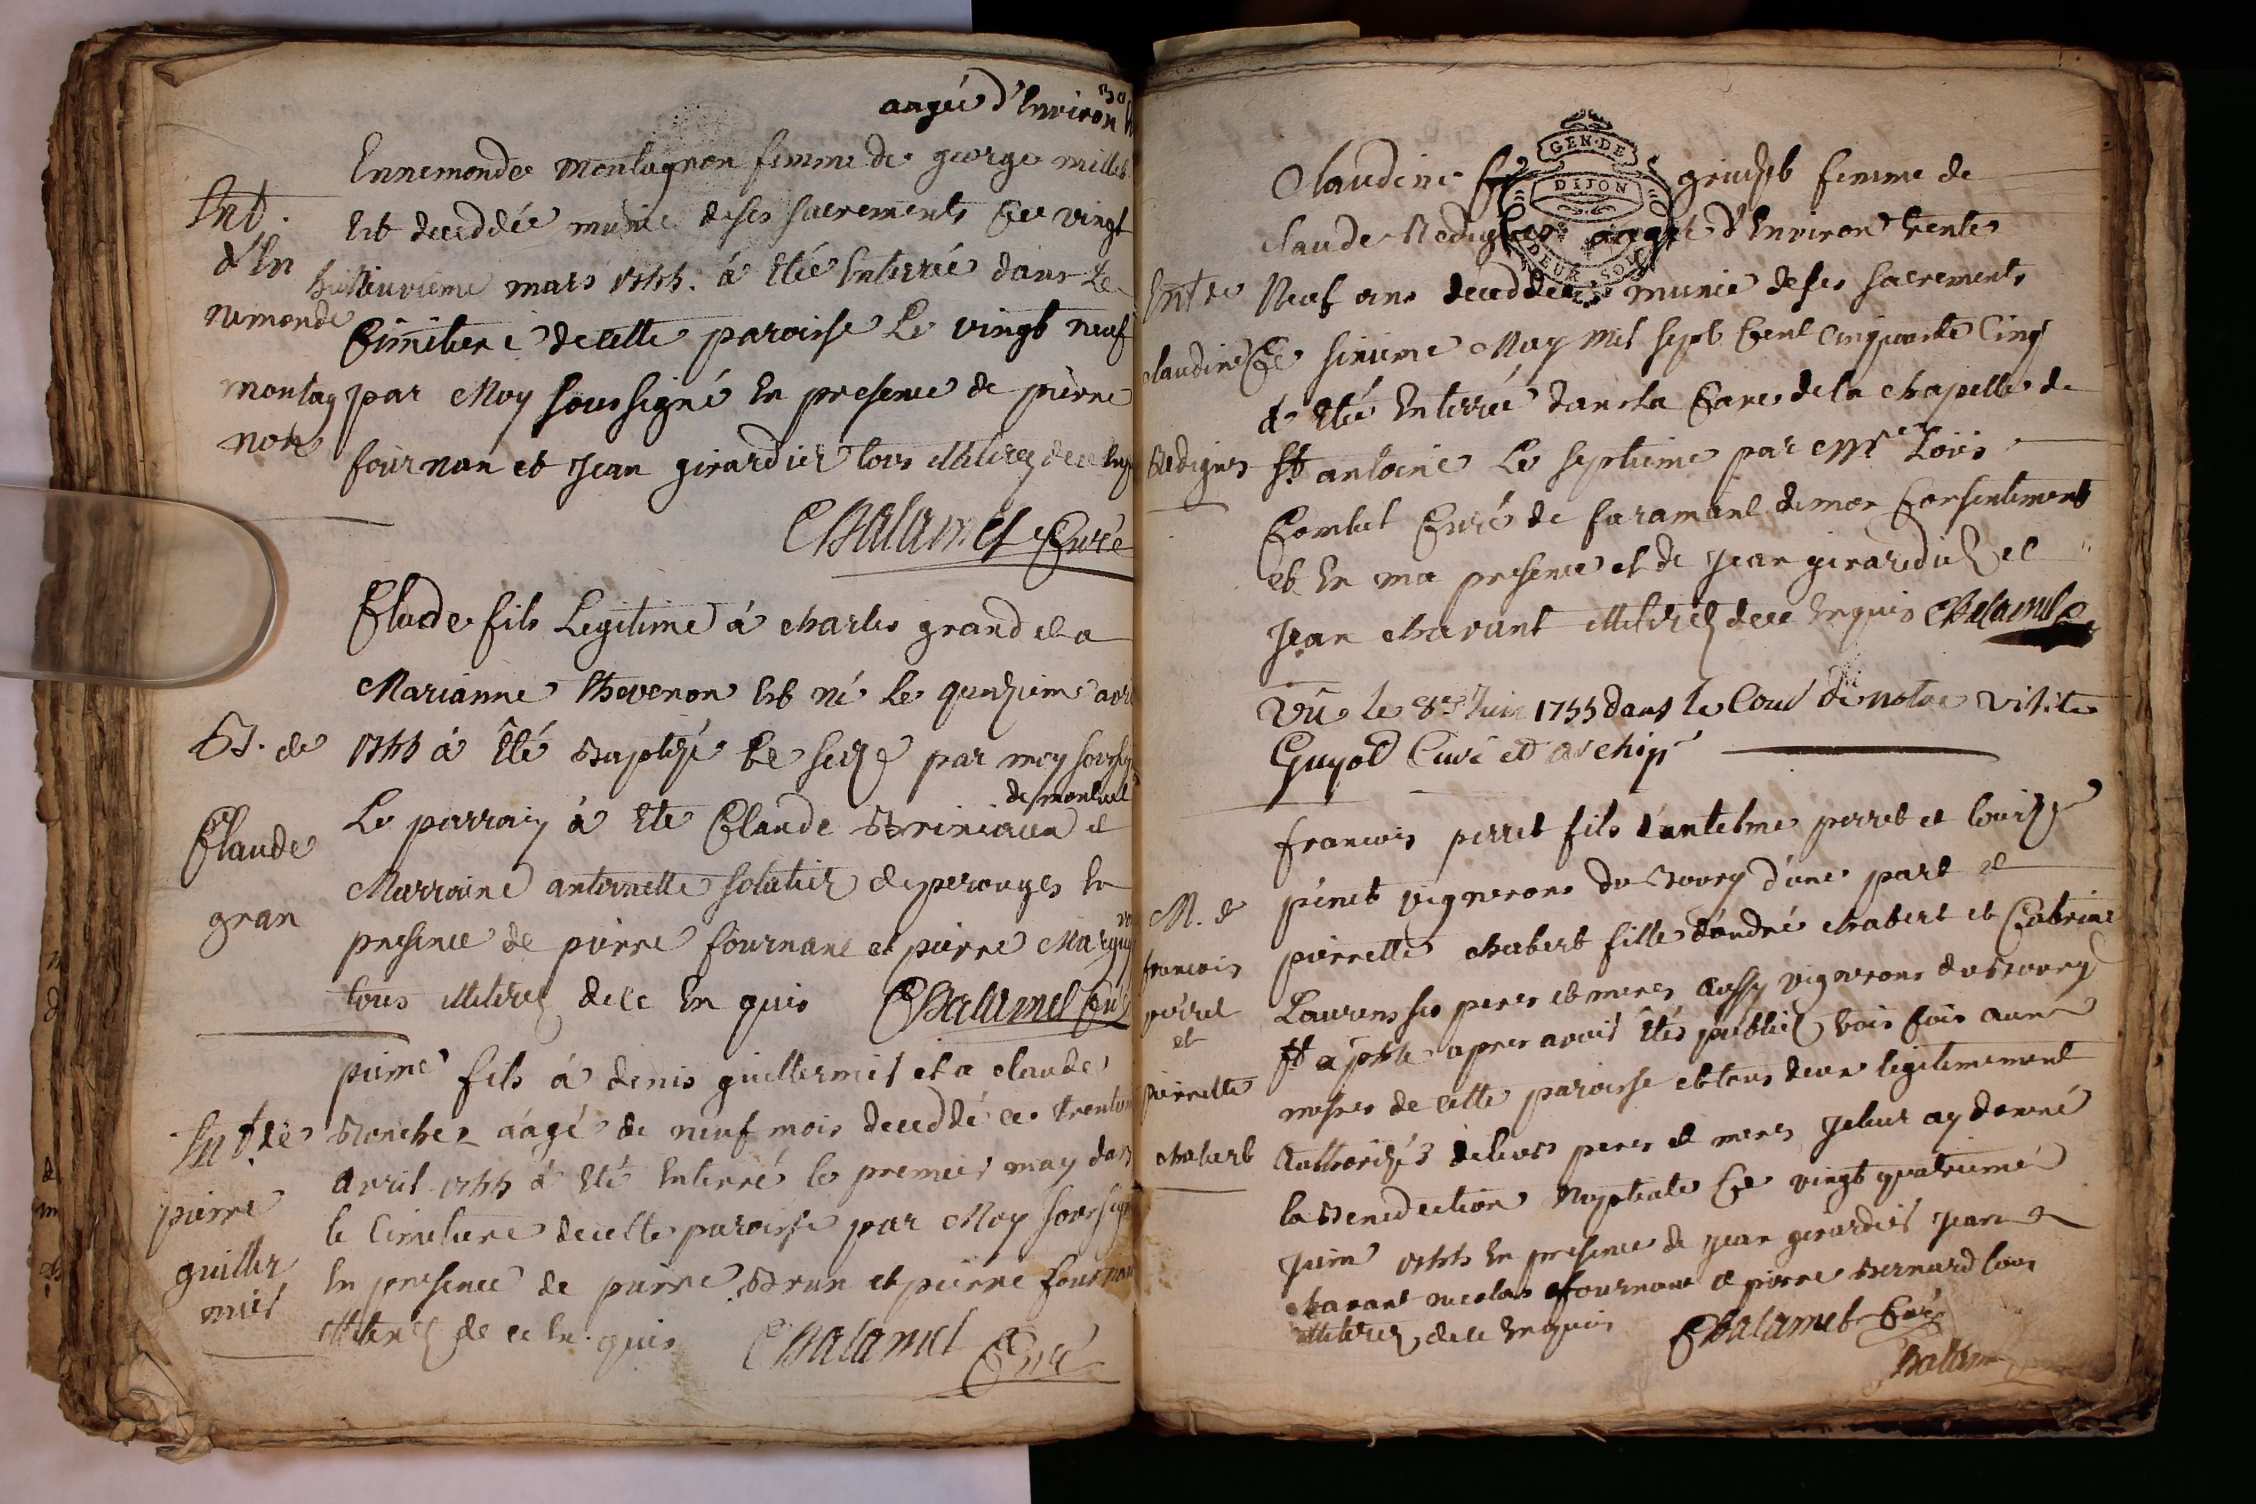 aagée d'Environ 30
Int.
d'En
nemonde
montag
non
Ennemonde montagnon femme de george millet
Est deceddée munie de ses sacrements Ce vingt
huitieme mars 1755. á Eté Enterrée dans Le
Cimetiere de cette paroisse Le vingt neuf
par Moy soussigné En presence de pierre
fournan et Jean girardier tous illiterez de ce Enq
Chalamel Curé
B. de
Claude
gran
Claude fils Legitime á charles grand et a
Marianne thevenon Est né Le quinzieme avr
1755 á Eté Baptizé Le seize par moy soussig
de montuel
Le parrain á Eté Claude et
Marraine antoinette de perouges En
presence de pierre fournan et pierre
tous illiterez de ce En quis Chalamel Curé
Int. de
pierre
guiller
met
pierre fils á denis guillermet et a claude
aagé de neuf mois deceddé ce trentie
avril 1755 á Eté Enterré le premier may dans
le Cimetiere de cette paroisse par Moy soussigné
En presence de pierre Brun et pierre fournan
illiterez de ce En quis Chalamel Curé
GEN. DE
DIJON
DEUX SOLS
Int de
claudine
Claudine femme de
claude aagée d'Environ trente
Neuf ans deceddée munie de ses sacrements
Ce sixieme May Mil sept Cent Cinquante Cinq
á Eté Enterrée dans La Cave de la chapelle de
St antoine Le septieme par Mre Loüis
Curé de faramant de mon Consentement
et En ma presence et de Jean girardier et
Jean chavant illiterez de ce Enquis Chalamel
Vû le 8e Juin 1755 dans le Cour de notre visite
Guyot Curé et archip
M. de
francois
perret
et
pierrette
chabert
francois perret fils d'antelme perret et Louize
penet vignerons du Bourg d'une part et
pierrette chabert fille d'andré chabert et
Laurens ses peres et meres aussy vignerons du Bourg
St apres avoir Etés publiez trois fois aux
messes de cette paroisse et tous deux legitimement
authorizés de leurs peres et meres Je leur ay donné
la Benediction Nuptiale Ce vingt quatrieme
Juin 1755 En presence de Jean girardier Jean
chavant nicolas fournan et pierre Bernard tous
illiterez de ce Enquis Chalamel Curé